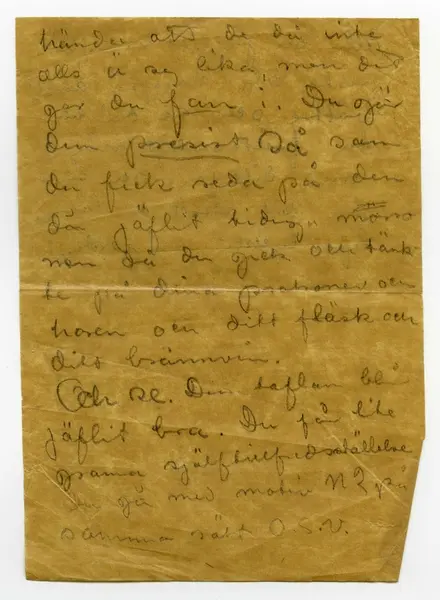 hända att de då inte
alls ä sej lika, men det
ger du fan i. Du gör
dem precist så som
du fick reda på den
då jäflit tidig,
nen då du gick och tänk-
te på dina patroner och
haren och ditt fläsk och
ditt brännvin.
Och se. Den taflan ble
jäflit bra. Du får lite
prama självtillfredsställelse
Du gå med motiv N 2 på
samma sätt O.S.V.